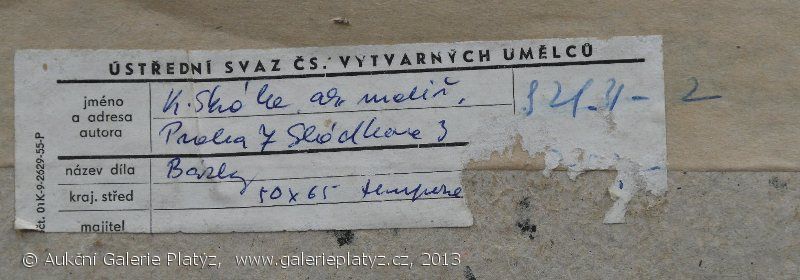 ÚSTŘEDNÍ SVAZ ČS. VÝTVARNÝCH UMĚLCŮ
jméno
a adresa
autora
K. Skála, ak. malíř,
Praha 7 Skádkova 3
název díla
kraj. střed 50x65 tempera
majitel
čt. 01K-9-2629-55-P
© Aukční Galerie Platýz, www.galerieplatyz.cz, 2013